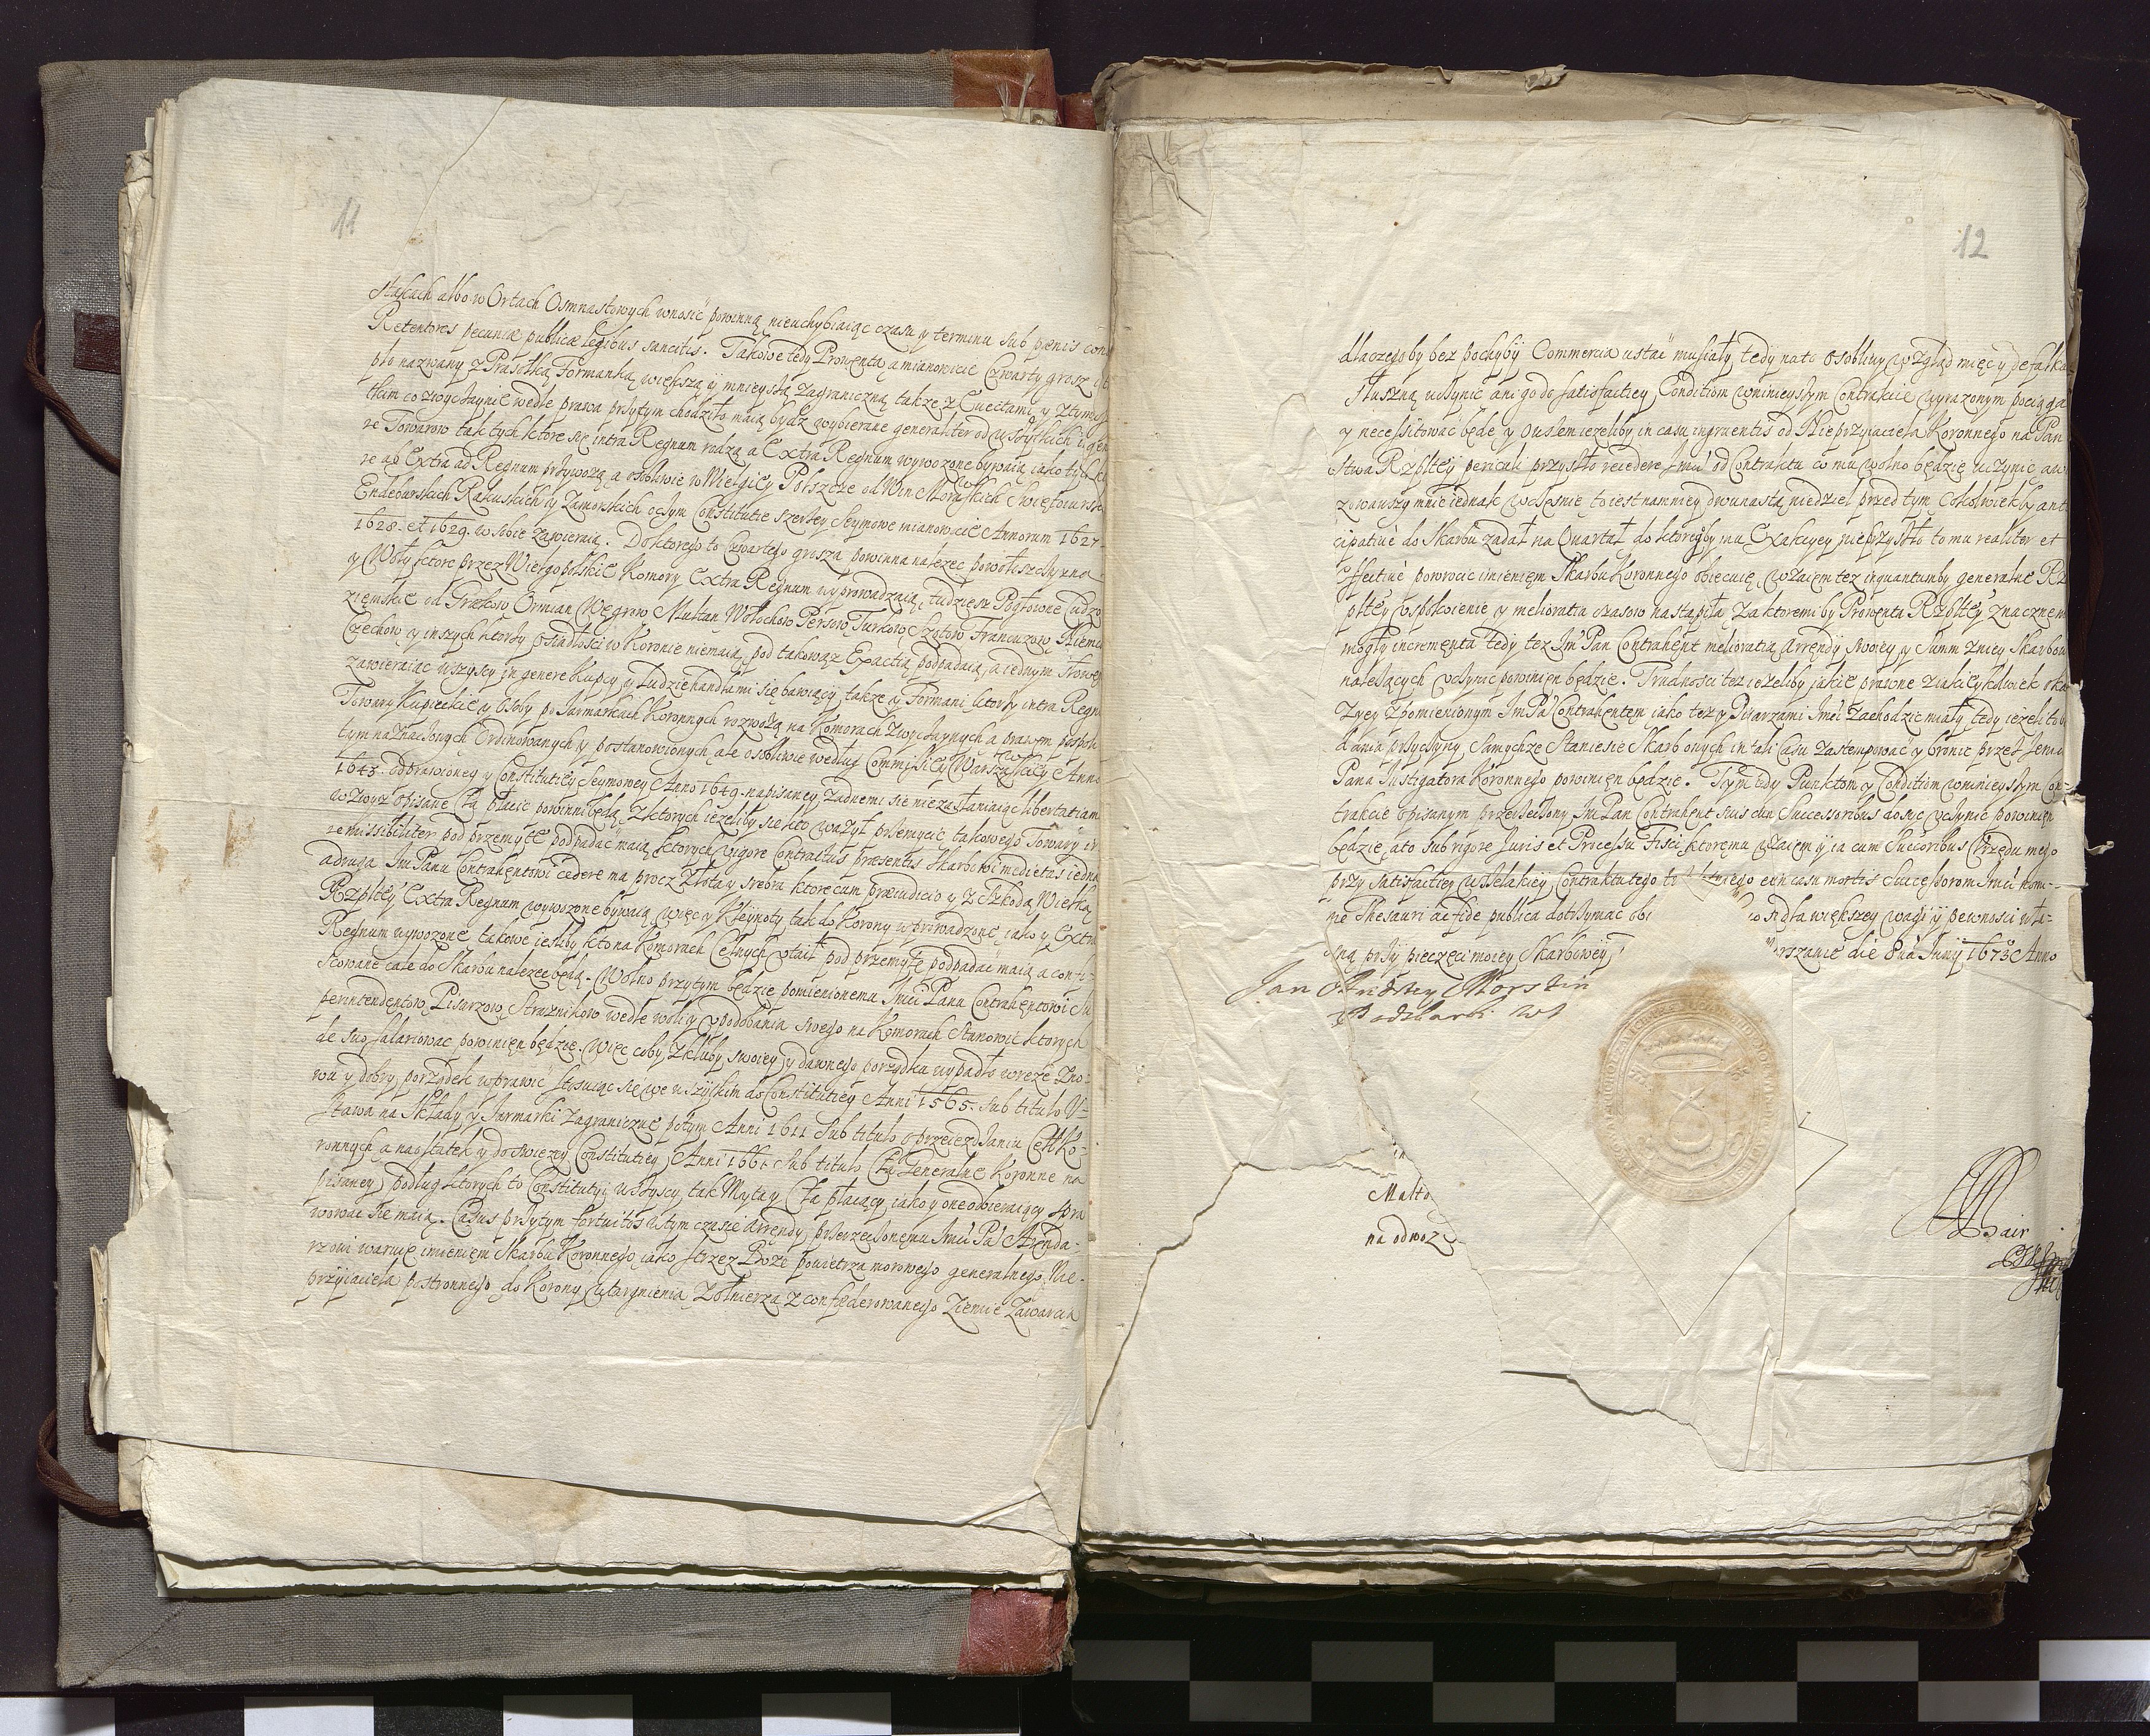 11
stakach albo w Ortach Osmnastowych wnosić powinną nieuchybiaiąc czasu y terminu sub pœnis con
Retentores pecuniæ publicæ legibus sancitis. Takowe tedy Prowenta a mianowicie Czwarty grosz
nazwany z Prasołką Formanką większą y mnieyszą Zagraniczną także z Cuectami y z tym
tkim co zwyczaynie wedle prawa przytym chodziło maią bydź wybierane generaliter od wszytkich in gen
re Towarow tak tych ktore się intra Regnum rodzą a Extra Regnum wywozone bywaią iako tych kto
re ab Extra ad Regnum przywożą a osobliwie w Wielgiey Polszcze od Win Morawskich Swiętoiurskich
Endeburskich Rakuskich y Zamorskich oczym Constitutie szerzey Seymowe mianowicie Annorum 1627
1628. et 1629. w sobie zawieraią. Do ktorego to Czwartego grosza powinna należec powołoszczyzna
y Woły ktore przez Wielgopolskie Komory Extra Regnum wyprowadzaią, tudziesz Pogłowie Cudzo
ziemskie od Grækow Ormian Węgrow Multan Wołochow Persow Turkow Szotow Francuzow Niemc
Czechow y inszych ktorzy osiadłości w Koronie niemaią, pod takowąz Exactią podpadaią, a iednym słowem
zawieraiąc wszyscy in genere Kupcy y Ludzie handlami się bawiący, także y Formani ktorzy intra Regn
Towary Kupieckie y Osoby po Jarmarkach Koronnych rozwożą na Komorach Zwyczaynych a prawem pospoli
tym naznaczonych Ordinowanych y postanowionych ale osobliwie według Commissiey Warszawskiey Anno
1643. odprawioney y Constitutiey Seymowey Anno 1649. napisaney, żadnemi się niezasłaniaiąc libertatiami
wzwyż opisane Cła płacic powinni będą, z ktorych ieżeliby się kto ważył przemycic takowego Towary ir
remissibiliter pod przemytę podpadać maią, ktorych vigore Contractus præsentis Skarbowi medietas iedna
a druga Im Panu Contrahentowi cedere ma procz złota y srebra ktore cum præiudicio y z Szkodą Wielką
Rzpltey Extra Regnum wywozone bywaią, więc y Kleynoty tak do Korony wprowadzone, iako y Extra
Regnum wywozone, takowe iesliby kto na Komorach Celnych utaił pod przemytę podpadać maią a confi-
scowane całe do Skarbu nalezec będą. Wolno przytym będzie pomienionemu Imci Panu Contrahentowi Su
perintendentow, Pisarzow, Straznikow wedle woli y upodobania swego na Komorach Stanowic ktorych
de suo salariowac powinien będzie. Więc coby z kluby swoiey y dawnego porządku wypadło wrzeze zno-
wu y dobry porządek wprawić stosuiąc się we wszytkim do Constitutiey Anni 1565. sub titulo U-
stawa na Składy y Jarmarki Zagraniczne potym Anni 1611 sub titulo o przeiezdzaniu Ceł Ko-
ronnych a naostatek y do swiezey Constitutiey Anni 1661. sub titulo Cła Generalne Koronne na
pisaney, podług ktorych to Constitutyi wszyscy tak Myta y Cła płaiący, iako y one odbieraiący spra
wowac się maią. Casus przytym fortuitos w tym czasie Arendy, przerzeczonemu Imci Pa' Arenda-
rzowi waruię imieniem Skarbu Koronnego, iako strzez Boże powietrza morowego generalnego, Nie-
przyiaciela postronnego do Korony wtargnienia, Żołnierza zconfœderowanego Ziemie Zawarcia
12
dlaczegoby bez pochyby Commercia ustać musiały, tedy na to osobliwy wzgląd mięć y defalka
słuszną uczynić ani go do satisfactiey Conditiom w ninieyszym Contrakcie wyrazonym pociąga
y necessitować będę y owszem ieżeliby in casu ingruentis od Nieprzyiaciela Koronnego na Pań
stwa Rzpltey periculi przyszło recedere Imci od Contraktu co mu wolno będzie uczynic aw
zowawszy mnie iednak wczesnie to iest namniey dwunastą niedziel przed tym Cokolwiek by anti
cipative do Skarbu zadał na Quartał do ktoregoby mu Exakcyey nieprzyszło to mu realiter et
effective powrocic imieniem Skarbu Koronnego obiecuię, wzaiem też inquantumby generalne Rz
pltey uspokoienie y melioratia czasow nastąpiła, za ktoremi by Prowenta Rzpltey znacznem
mogły incrementa tedy tez Im' Pan Contrahent melioratią Arrendy swoiey y Summ z niey Skarbow
nalezących uczynic powinien będzie. Trudnosci tez ieżeliby iakie prawne z iakieykolwiek oka
zyey z pomienionym Im Pa' Contrahentem iako tez y Pisarzami Imci zachodzic miały, tedy ieżeli to b
dania przyczyny samychże stanie się Skarb onych in tali casu zastempowac y bronic przez Jeme
Pana Instigatora Koronnego powinien będzie. Tym tedy Punktom y Conditiom w ninieyszym Con-
trakcie opisanym przerzeczony Im Pan Contrahent suis cum Successoribus dosyc uczynic powinien
będzie, a to sub rigore Juris et Processu Fisci, ktoremu wzaiem y ia cum Succoribus Urzędu mego
przy satisfactiey wszelakiey Contraktu tego t swego et in casu mortis Successorom Imci nom-
ne Thesauri ac fide publica dotrzymac obi co dla większey wagi y pewnosci wła-
sną przy pieczęci moiey Skarbowey arszawie die 8va Junij 1673 Anno
Jan Andrzey Morstin
Podskarbi WK
Malto
na odwoz